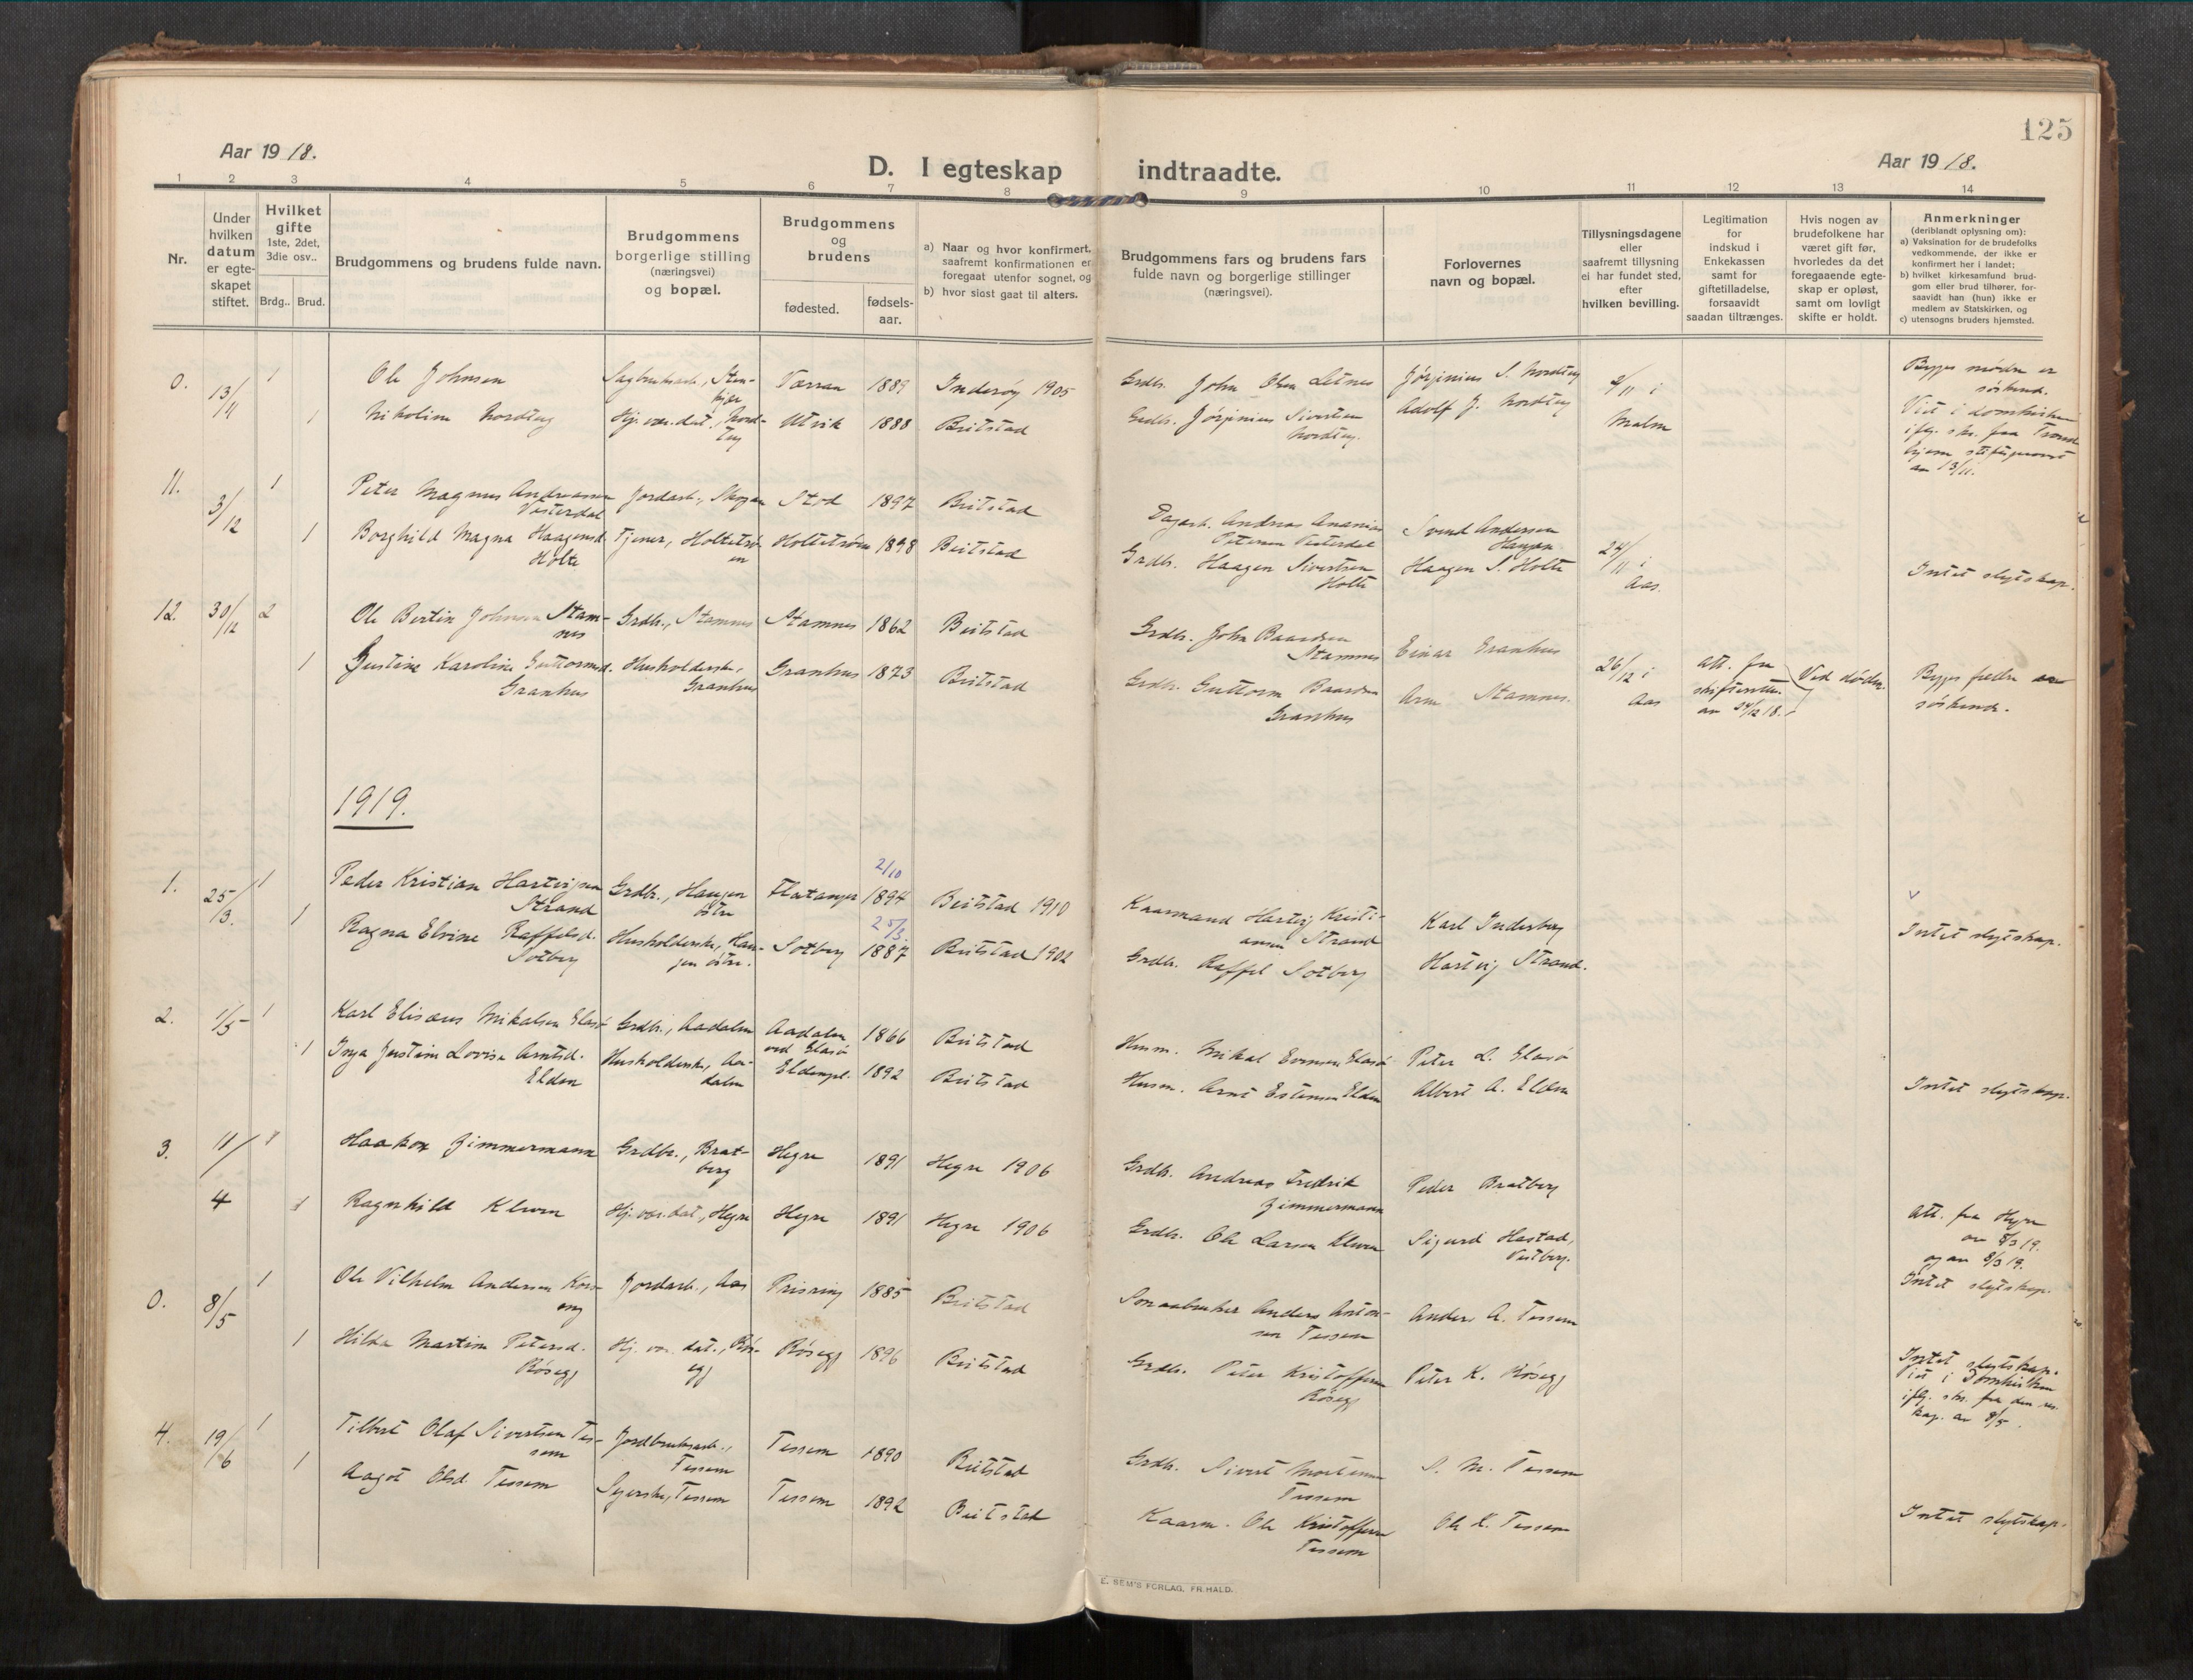 125
Aar 1918.
D. I egteskap indtraadte.
Aar 1918.
1 2 3 4 5 6 7 8 9 10 11 12 13 14
Nr.
Under
hvilken
datum
er egte-
skapet
stiftet.
Hvilket
gifte
1ste, 2det,
3die osv..
Brdg.. Brud.
Brudgommens og brudens fulde navn.
Brudgommens
borgerlige stilling
(næringsvei)
og bopæl.
Brudgommens
og
brudens
fødested.
fødsels-
aar.
a) Naar og hvor konfirmert,
saafremt konfirmationen er
foregaat utenfor sognet, og
b) hvor sidst gaat til alters.
Brudgommens fars og brudens fars
fulde navn og borgerlige stillinger
(næringsvei).
Forlovernes
navn og bopæl.
Tillysningsdagene
eller
saafremt tillysning
ei har fundet sted,
efter
hvilken bevilling.
Legitimation
for
indskud i
Enkekassen
samt for
giftetilladelse,
forsaavidt
saadan tiltrænges.
Hvis nogen av
brudefolkene har
været gift før,
hvorledes da det
foregaaende egte-
skap er opløst,
samt om lovligt
skifte er holdt.
Anmerkninger
(deriblandt oplysning om):
a) Vaksination for de brudefolks
vedkommende, der ikke er
konfirmert her i landet;
b) hvilket kirkesamfund brud-
gom eller brud tilhører, for-
saavidt han (hun) ikke er
medlem av Statskirken, og
c) utensogns bruders hjemsted.
0. 13/11 1 Ole Johnsen Sagbruksarb., Sten-
kjer Værran 1889 Inderøy 1905 Grdbr. John Olsen Letnes Jørginius S. Nordtug 2/11 i
Malm
Bygges mødre er
søskend.
Viet i domkirken
ifg. skr. fra Trond-
hjem stiftsprovst
av 13/11.
1 Nikoline Nordtug Hj. vær. dat., Nord-
tug Utvik 1888 Beitstad Grdbr. Jørginius Sivertsen
Nordtug. Adolf J. Nordtug
11. 3/12 1 Peter Magnus Andreassen
Vesterdal Jordarb., Skogan Stod 1897 Beitstad Dagarb. Andreas Ananias
Petersen Vesterdal Svend Andersen
Haugan
1 Borghild Magna Haagensd.
Holte Tjener, Holtetrø-
en Holtetrøen 1898 Beitstad Grdbr. Haagen Sivertsen
Holte Haagen S. Holte 24/11 i
Aas. Intet slegtskap.
12. 30/12 2 Ole Bertin Johnsen Stam-
nes Grdbr., Stamnes Stamnes 1862 Beitstad Grdbr. John Baardsen
Stamnes Einar Granhus
1 Justine Karoline Guttormsd.
Granhus Husholderske,
Granhus Granhus 1873 Beitstad Grdbr. Guttorm Baardsen
Granhus Arne Stamnes. 26/12 i
Aas Att. fra
skifteretten
av 24/12 18. Ved døden. Bygges fædre
søskende.
1919.
1. 25/3. 1 Peder Kristian Hartvigsen
Strand Grdbr., Haugen
østre Flatanger 2/10
1894 Beitstad 1910 Kaarmand Hartvig Kristi-
ansen Strand Karl Inderberg
1 Ragna Elvine Raffelsd.
Sotberg Husholderske, Hau-
gen østre. Sotberg 25/3.
1887 Beitstad 1902 Grdbr. Raffel Sotberg Hartvig Strand. Intet slegtskap.
2. 1/5 1 Karl Elisæus Mikalsen Elasø Grdbr., Aadalen Aadalen
ved Elasø 1866 Beitstad Husm. Mikal Evensen Elasø Peter L. Elasø
1 Inga Justine Lovise Arntsd.
Elden Husholderske, Aa-
dalen Eldenpl. 1892 Beitstad Husm. Arnt Estensen Elden Albert A. Elden Intet slegtskap.
3. 11/4 1 Haakon Zimmermann Grdbr., Brat-
berg Hegre 1891 Hegre 1906 Grdbr. Andreas Fredrik
Zimmermann Peder Bratberg
1 Ragnhild Kleven Hj. vær. dat., Hegre Hegre 1891 Hegre 1906 Grdbr. Ole Larsen Kleven Sigurd Hastad,
Vestberg. Att. fra Hegre
av 8/3 19.
og av 8/3 19.
Intet slegtskap.
0. 8/5 1 Ole Vilhelm Andersen Kors-
eng Jordarb., Aas Prisring 1885 Beitstad Sonaabruker Anders Anton-
sen Tessem Anders A. Tessem
1 Hilda Martine Petersd.
Røsegg Hj. vær. dat., Røs-
egg Røsegg 1896 Beitstad Grdbr. Peter Kristoffersen
Røsegg Peter K. Røsegg Intet slegtskap.
Viet i Domkirken
ifg. skr. fra den res.
kap. av 8/5.
4. 19/6 1 Tilbert Olaf Sivertsen Tes-
sem Jordbruksarb.,
Tessem Tessem 1890 Beitstad Grdbr. Sivert Mortensen
Tessem S. M. Tessem
1 Aagot Olsd. Tessem Syerske, Tessem Tessem 1892 Beitstad Kaarm. Ole Kristoffersen
Tessem Ole K. Tessem Intet slegtskap.
E. SEM'S FORLAG, FR.HALD.